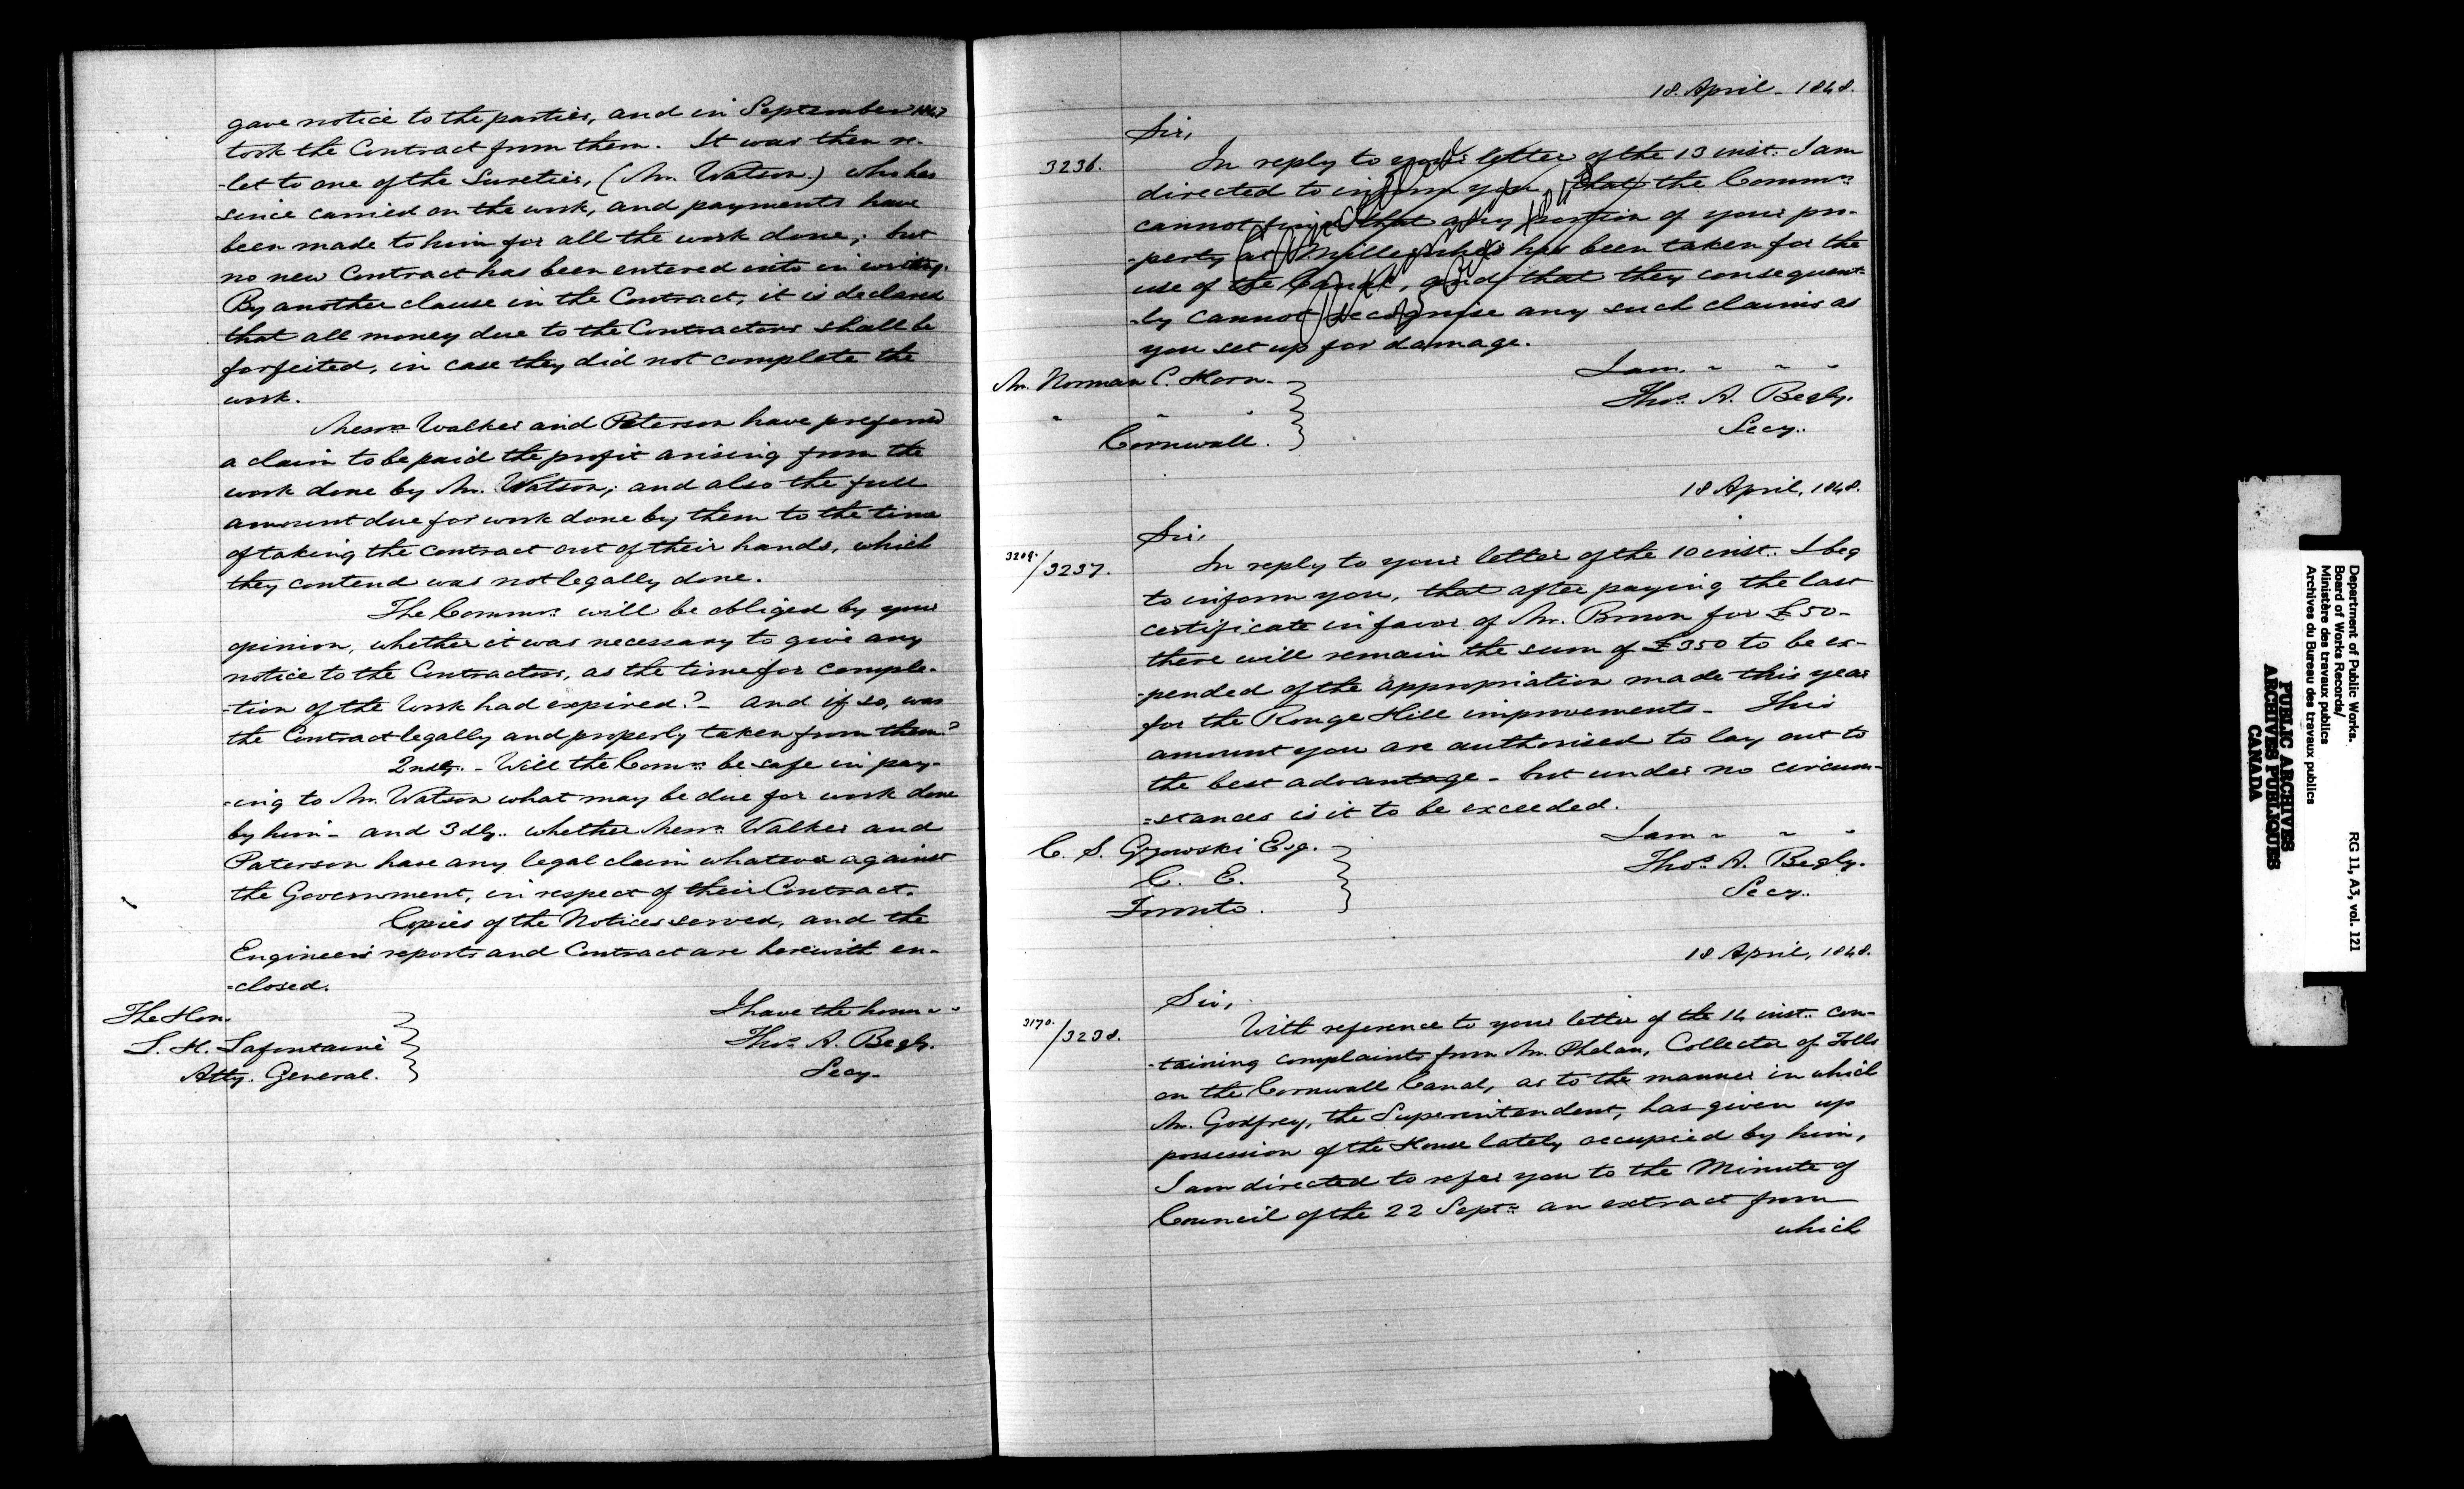 gave notice to the parties, and in September 1847
took the Contract from them. It was then re-
-let to one of the Sureties, (Mr. Watson.) who has
since carried on the work, and payments have
been made to him for all the work done; but
no new Contract has been entered into in writing.
By another clause in the Contract, it is declared
that all money due to the Contractors shall be
forfeited, in case they did not complete the
work.
Messrs Walker and Paterson have preferred
a claim to be paid the profit arising from the
work done by Mr. Watson; and also the full
amount due for work done by them to the time
of taking the contract out of their hands, which
they contend was not legally done.
The Commrs will be obliged by your
opinion, whether it was necessary to give any
notice to the Contractors, as the time for comple-
-tion of the Work had expired? - and if so, was
the Contract legally and properly taken from them?
2ndly. - Will the Comrs be safe in pay-
-ing to Mr. Watson what may be due for work done
by him - and 3dly. whether Messrs Walker and
Paterson have any legal claim whatever against
the Government, in respect of their Contract.
Copies of the Notices served, and the
Engineers reports and Contract are herewith en-
-closed.
I have the honor " "
The Hon.
L. H. Lafontaine
Atty. General.
Thos. A. Begly.
Secy.
18. April - 1848.
Sir,
3236. In reply to your letter of the 13 inst. I am
directed to inform you, that the Commrs
cannot find that any portion of your pro-
-perty at Milleroches has been taken for the
use of the Canal, and that they consequent-
-ly cannot recognise any such claims as
you set up for damage.
I am " " "
Mr. Norman C. Horn.
" " "
Cornwall.
Thos. A. Begly.
Secy.
18 April, 1848.
Sir,
3209./3237. In reply to your letter of the 10 inst. I beg
to inform you, that after paying the last
certificate in favor of Mr. Brown for £50 -
there will remain the sum of £350 to be ex-
-pended of the appropriation made this year
for the Rouge Hill improvements - This
amount you are authorised to lay out to
the best advantage - but under no circum-
-stances is it to be exceeded.
I am " " "
C. S. Gzowski Esq.
C. E.
Toronto.
Thos. A. Begly.
Secy.
18 April, 1848.
Sir,
3170./3238. With reference to your letter of the 14 inst. con-
-taining complaints from Mr. Phelan, Collector of Tolls
on the Cornwall Canal, as to the manner in which
Mr. Godfrey, the Superintendent, has given up
possession of the House lately occupied by him,
I am directed to refer you to the Minute of
Council of the 22 Septr. an extract from
which
Department of Public Works.
Board of Works Records/
Ministère des travaux publics
Archives du Bureau des travaux publics
RG 11, A3, vol. 121
PUBLIC ARCHIVES
ARCHIVES PUBLIQUES
CANADA